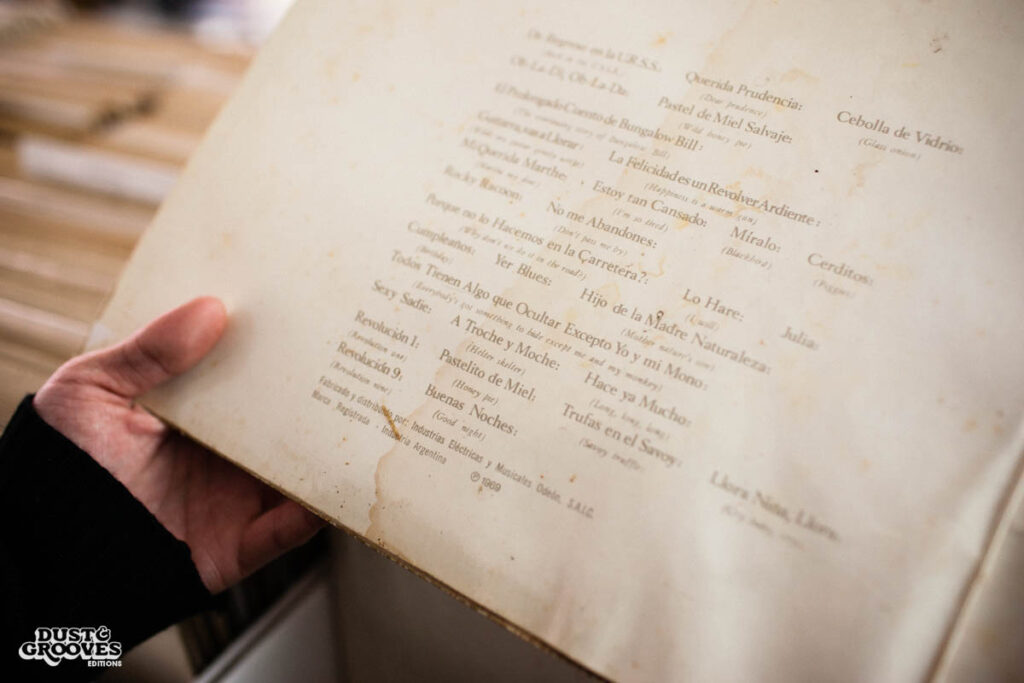 De Regreso en la U.R.S.S.: Querida Prudencia: Cebolla de Vidrio:
(Back in the U.S.S.R.) (Dear prudence) (Glass onion)
Ob-La-Di, Ob-La-Da: Pastel de Miel Salvaje:
(Wild honey pie)
El Prolongado Cuento de Bungalow Bill:
(The continuing story of Bungalow Bill)
Guitarra, vas a Llorar: La Felicidad es un Revolver Ardiente:
(While my guitar gently weeps) (Happiness is a warm gun)
Mi Querida Marthe: Estoy tan Cansado: Míralo: Cerditos:
(Martha my dear) (I'm so tired) (Blackbird) (Piggies)
Rocky Racoon: No me Abandones:
(Don't pass me by)
Porque no lo Hacemos en la Carretera?: Lo Hare: Julia:
(Why don't we do it in the road?) (I will)
Cumpleaños: Yer Blues: Hijo de la Madre Naturaleza:
(Birthday) (Mother nature's son)
Todos Tienen Algo que Ocultar Excepto Yo y mi Mono:
(Everybody's got something to hide except me and my monkey)
Sexy Sadie: A Troche y Moche: Hace ya Mucho:
(Helter skelter) (Long, long, long)
Revolución 1: Pastelito de Miel: Trufas en el Savoy:
(Revolution one) (Honey pie) (Savoy truffle)
Revolución 9: Buenas Noches: Llora Niña, Llora:
(Revolution nine) (Good night) (Cry baby, cry)
Fabricado y distribuido por: Industrias Eléctricas y Musicales Odeón, S.A.I.C.
Marca Registrada - Industria Argentina
℗ 1969
DUST &
GROOVES
EDITIONS